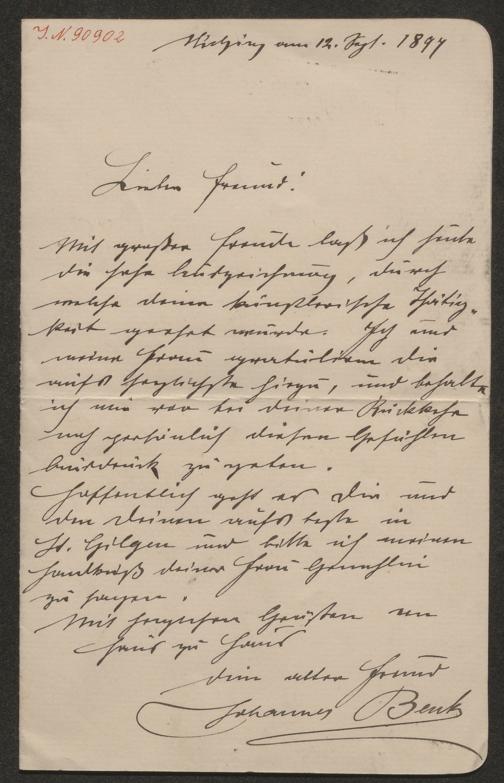 I.N. 90902
Hietzing am 12. Sept. 1897
Lieber Freund!
Mit großer Freude laß ich heute
die hohe Auszeichnung, durch
welche deine künstlerische Thätig-
keit geehrt wurde. Ich und
meine Frau gratuliren dir
aufs herzlichste hiezu, und behalte
ich mir vor bei deiner Rückkehr
noch persönlich diesen Gefühlen
Ausdruck zu geben.
Hoffentlich geht es Dir und
den Deinen aufs beste in
St. Gilgen und bitte ich meinen
Handkuß deiner Frau Gemahlin
zu sagen.
Mit herzlichen Grüßen von
Haus zu Haus
dein alter Freund
Johannes Benk